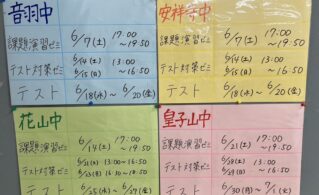 音羽中
課題演習ゼミ 6/7(土) 17:00～19:50
テスト対策ゼミ 6/14(土) 6/15(日) 13:00～16:50
テスト 6/18(水)～6/20(金)
安祥寺中
課題演習ゼミ 6/7(土) 17:00～19:50
テスト対策ゼミ 6/14(土) 6/15(日) 13:00～16:50
テスト 6/18(水)～6/20(金)
花山中
課題演習ゼミ 6/14(土) 17:00～19:50
テスト対策ゼミ 6/21(土) 13:00～16:50
テスト 6/25(水)～6/27(金)
皇子山中
課題演習ゼミ 6/21(土) 17:00～19:50
テスト対策ゼミ 6/28(土) 6/29(日) 13:00～16:50
テスト